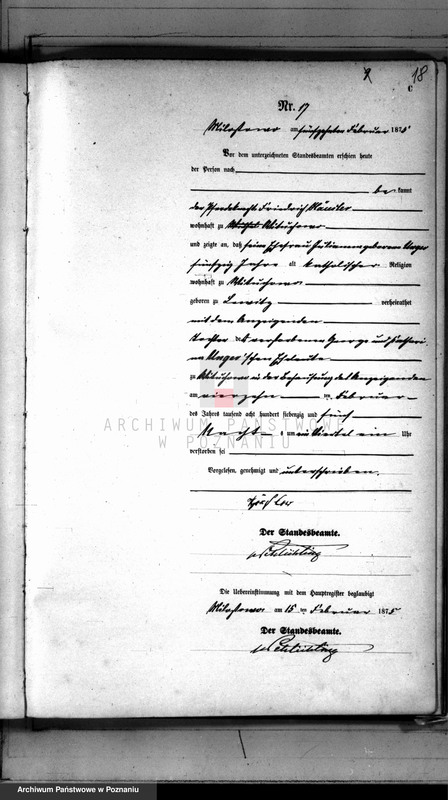 18
C
Nr. 17
Milostowo am fünfzehnten Februar 1875
Vor dem unterzeichneten Standesbeamten erschien heute
der Person nach
be kannt
der Pferdeknecht Friedrich
wohnhaft zu Mituchowo
und zeigte an, daß seine Ehefrau geborene Unger
fünfzig Jahre alt katholischer Religion
wohnhaft zu Mituchowo
geboren zu Lewitz verheirathet
mit dem Anzeigenden
Tochter der verstorbenen George und
Unger'schen Eheleute
zu Mituchowo in der Behausung des Anzeigenden
am vierzehn ten Februar
des Jahres tausend acht hundert siebenzig und fünf
Nachts um ein Viertel ein Uhr
verstorben sei
Vorgelesen, genehmigt und unterschrieben.
Der Standesbeamte.
Die Uebereinstimmung mit dem Hauptregister beglaubigt
Milostowo am 15 ten Februar 1875
Der Standesbeamte.
ARCHIWUM PAŃSTWOWE
W POZNANIU
Archiwum Państwowe w Poznaniu